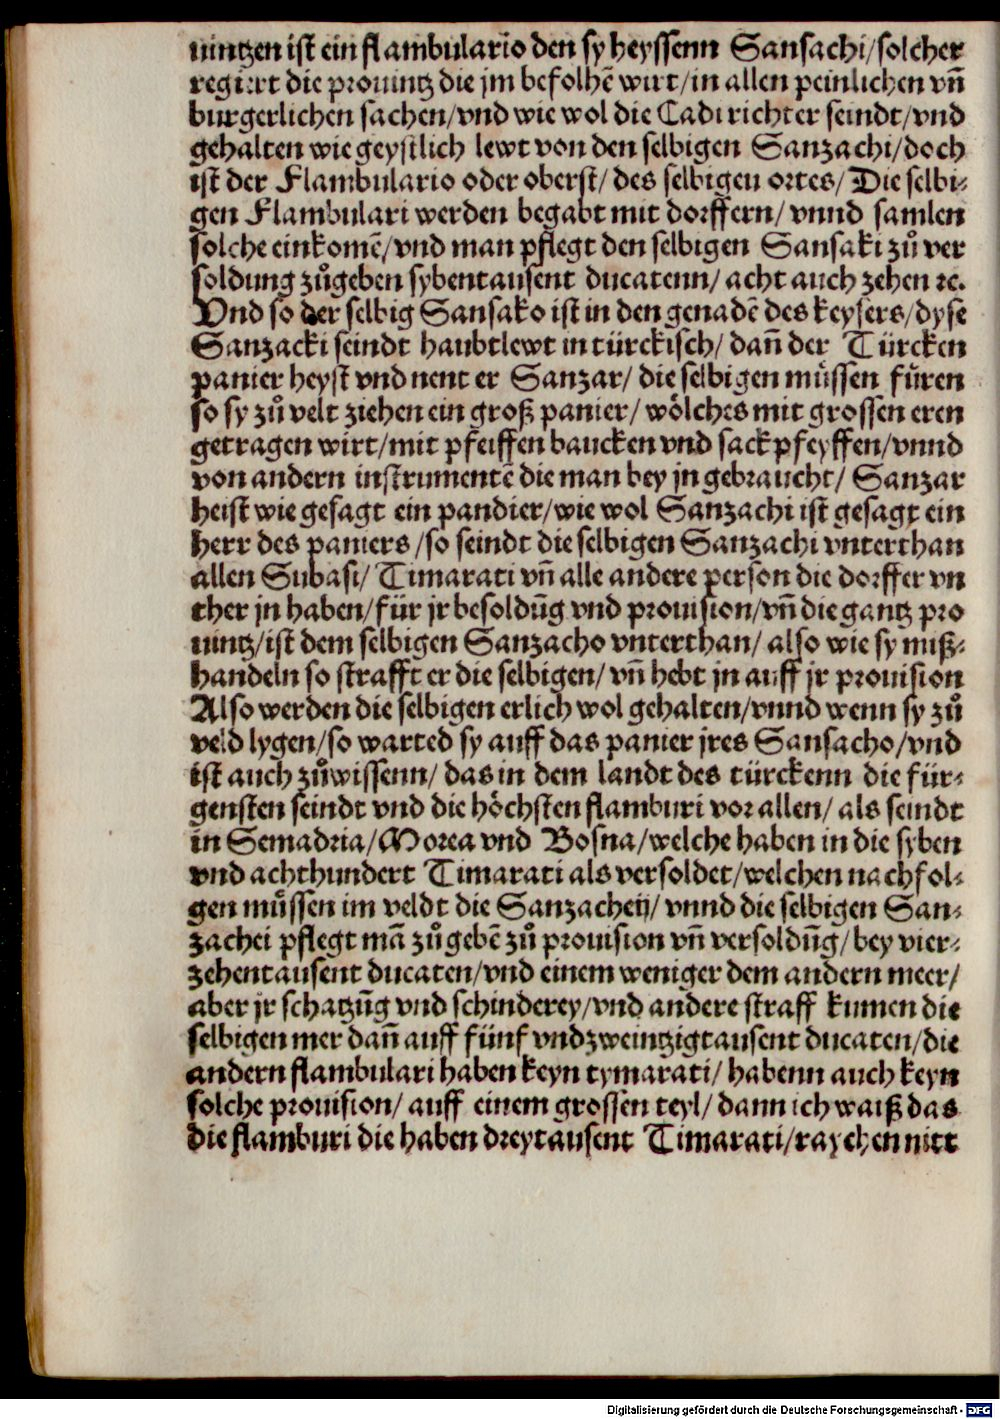 uintzen ist ein flambulario den sy heyssenn Sansachi/solcher
regiert die prouintz die jm befolhē wirt/in allen peinlichen vñ
burgerlichen sachen/vnd wie wol die Cadi richter seindt/vnd
gehalten wie geystlich lewt von den selbigen Sanzachi/doch
ist der Flambulario oder oberst/des selbigen ortes/Die selbi⸗
gen Flambulari werden begabt mit dorffern/vnnd samlen
solche einkomē/vnd man pflegt den selbigen Sansaki zů ver
soldung zůgeben sybentausent ducatenn/acht auch zehen ꝛc.
Vnd so der selbig Sansako ist in den genadē des keysers/dyse
Sanzacki seindt haubtlewt in türckisch/dañ der Türcken
panier heyst vnd nent er Sanzar/die selbigen müssen füren
so sy zů velt ziehen ein groß panier/wölches mit grossen eren
getragen wirt/mit pfeiffen baucken vnd sackpfeyffen/vnnd
von andern instrumentē die man bey jn gebraucht/Sanzar
heist wie gesagt ein pandier/wie wol Sanzachi ist gesagt ein
herr des paniers/so seindt die selbigen Sanzachi vnterthan
allen Subasi/Timarati vñ alle andere person die dorffer vn
ther jn haben/für jr besoldūg vnd prouision/vñ die gantz pro
uintz/ist dem selbigen Sanzacho vnterthan/also wie sy miß⸗
handeln so strafft er die selbigen/vñ hebt jn auff jr prouision
Also werden die selbigen erlich wol gehalten/vnnd wenn sy zů
veld lygen/so warted sy auff das panier jres Sansacho/vnd
ist auch zůwissenn/das in dem landt des türckenn die für⸗
gensten seindt vnd die höchsten flamburi vor allen/als seindt
in Semadria/Morea vnd Bosna/welche haben in die syben
vnd achthundert Timarati als versoldet/welchen nachfol⸗
gen müssen im veldt die Sanzacheij/vnnd die selbigen San⸗
zachei pflegt mā zůgebē zů prouision vñ versoldūg/bey vier⸗
zehentausent ducaten/vnd einem weniger dem andern meer/
aber jr schatzūg vnd schinderey/vnd andere straff kumen die
selbigen mer dañ auff fünf vndzweintzigtausent ducaten/die
andern flambulari haben keyn tymarati/habenn auch keyn
solche prouision/auff einem grossen teyl/dann ich waiß das
die flamburi die haben dreytausent Timarati/raychen nitt
Digitalisierung gefördert durch die Deutsche Forschungsgemeinschaft - DFG